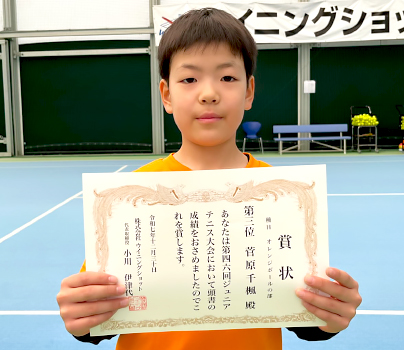 ウイニングショッ
賞状
種目 オレンジボールの部
第三位 菅原千楓 殿
あなたは第四六回ジュニア
テニス大会において頭書の
成績をおさめましたのでこ
れを賞します。
令和七年十二月二十日
株式会社 ウイニングショット
代表取締役 小川 伊津代